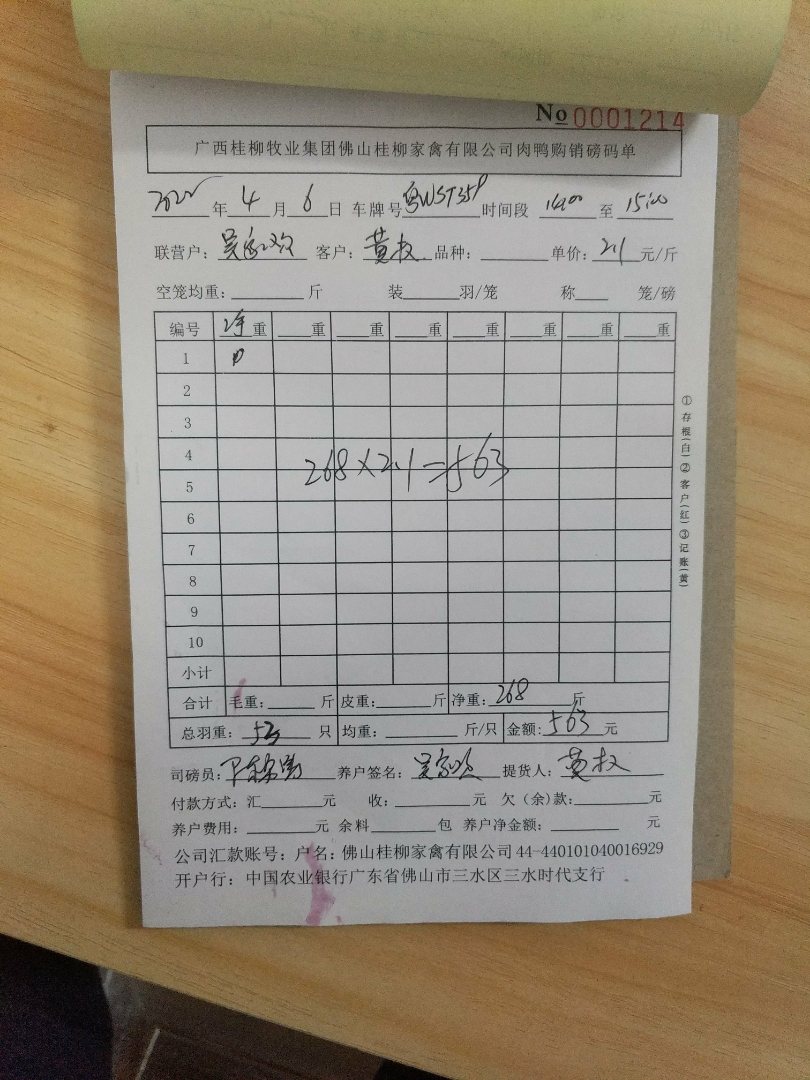 No 0001214
广西桂柳牧业集团佛山桂柳家禽有限公司肉鸭购销磅码单
2022年4月6日 车牌号粤WST359 时间段 14:00至15:00
联营户：吴家欢 客户：黄权 品种： 单价：2.1元/斤
空笼均重： 斤 装 羽/笼 称 笼/磅
编号 净重 重 重 重 重 重 重 重
1
2
3
4
268×2.1=563
5
6
7
8
9
10
小计
合计 毛重： 斤 皮重： 斤 净重：268斤
总羽重：53只 均重： 斤/只 金额：563元
司磅员： 养户签名：吴家欢 提货人：黄权
付款方式：汇 元 收： 元 欠（余）款： 元
养户费用： 元 余料 包 养户净金额： 元
公司汇款账号：户名：佛山桂柳家禽有限公司44-440101040016929
开户行：中国农业银行广东省佛山市三水区三水时代支行
①存根(白)②客户(红)③记账(黄)